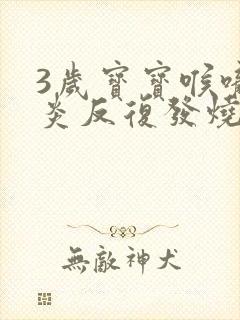 3歲寶寶喉嚨
炎反復發燒
無敵神犬